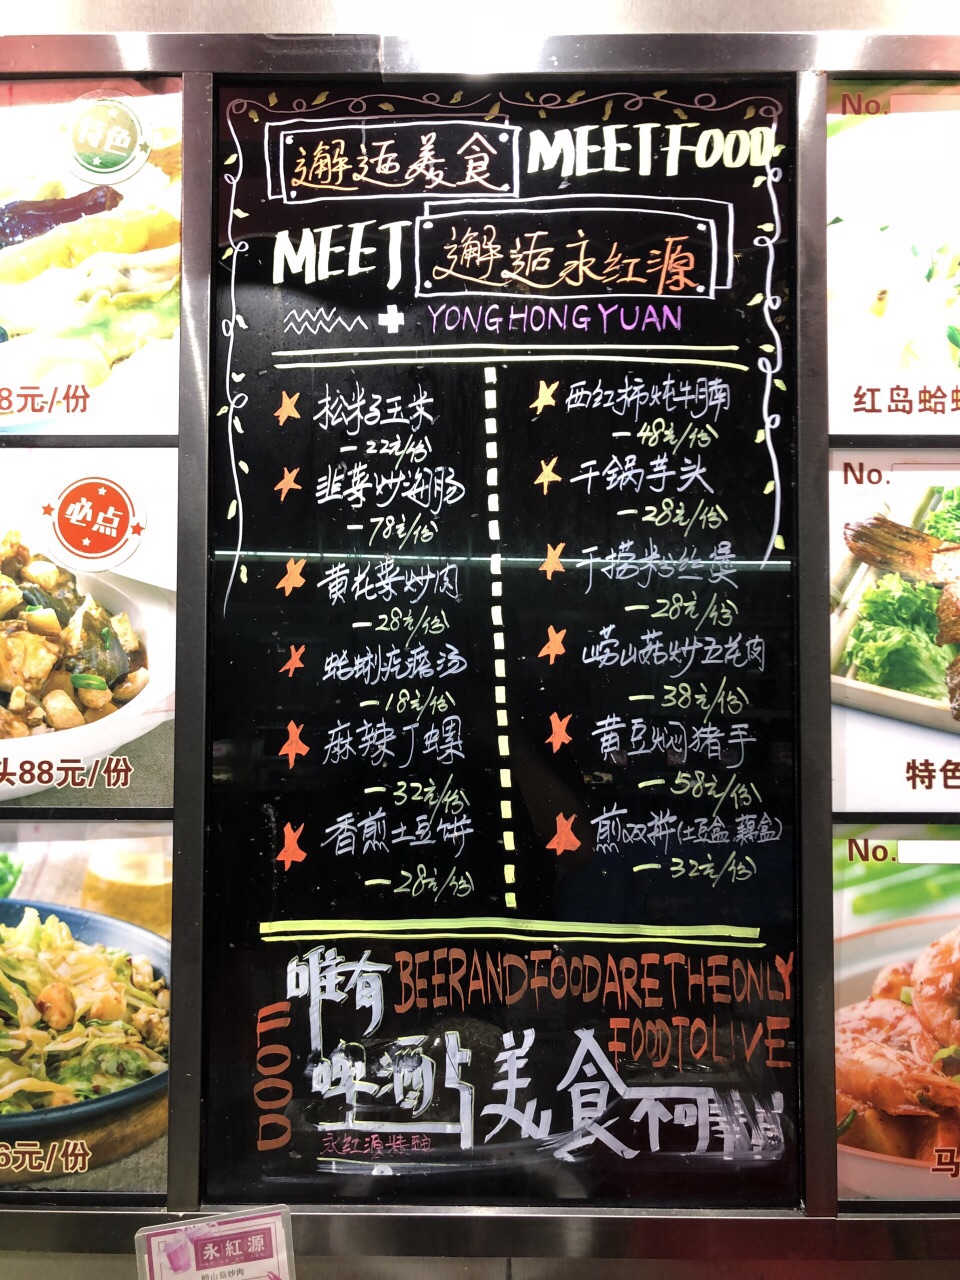 特色
8元/份
必点
头88元/份
6元/份
邂逅美食 MEET FOOD
MEET 邂逅永红源
YONG HONG YUAN
松籽玉米
一22元/份
韭菜炒海肠
一78元/份
黄花菜炒肉
一28元/份
蛤蜊疙瘩汤
一18元/份
麻辣丁螺
一32元/份
香煎土豆饼
一28元/份
西红柿炖牛腩
一48元/份
干锅芋头
一28元/份
干捞粉丝煲
一28元/份
崂山菇炒五花肉
一38元/份
黄豆焖猪手
一58元/份
煎双拼(土豆盒.藕盒)
一32元/份
唯有 BEER AND FOOD ARE THE ONLY
FOOD TO LIVE
FOOD
啤酒与美食不可辜负
永紅源特酿
永紅源
崂山菇炒肉
No.
红岛蛤蜊
No.
特色
No.
马